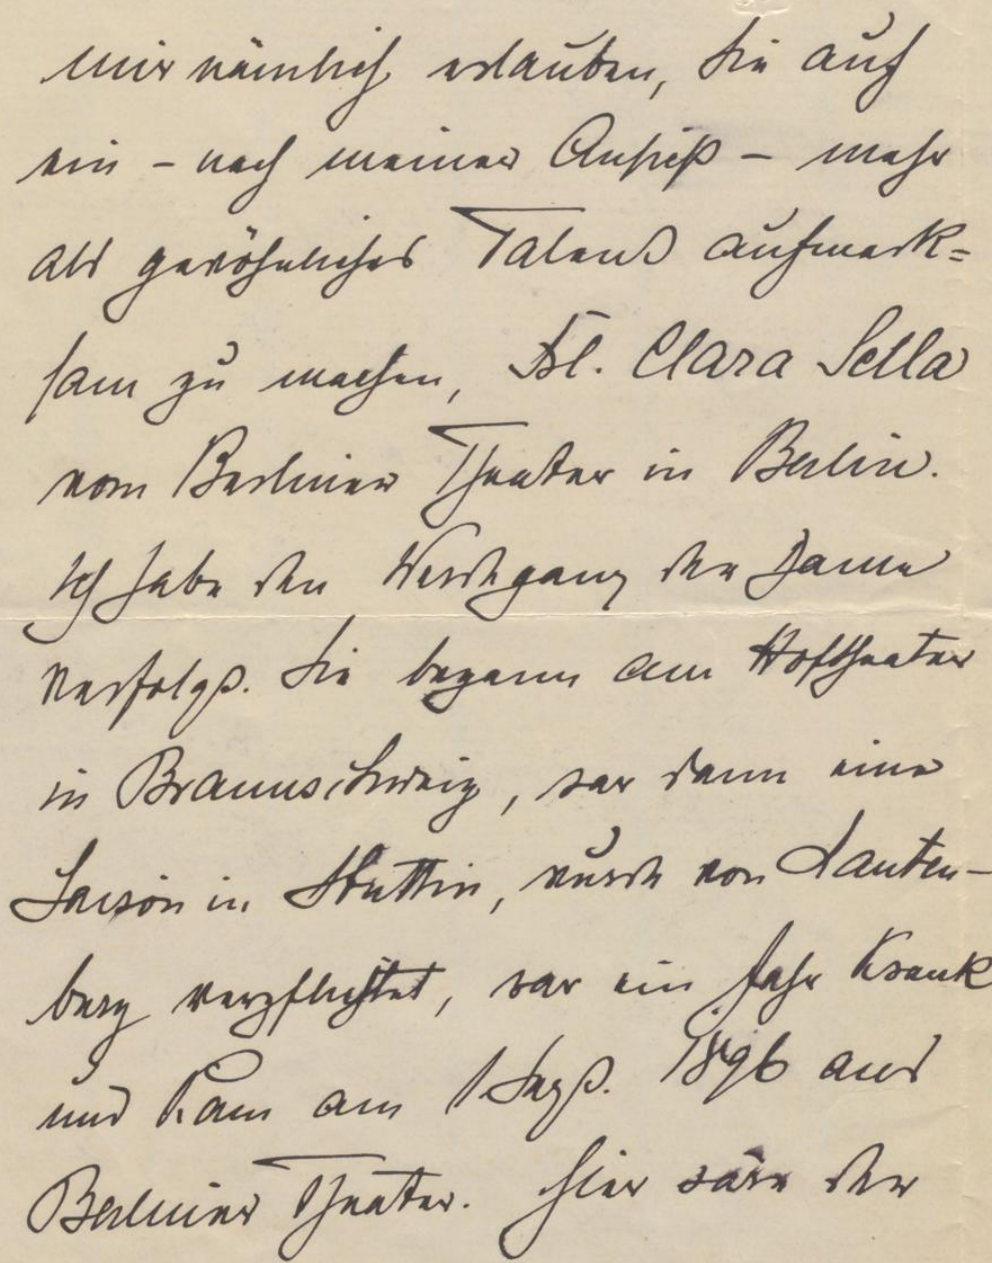 mir nämlich erlauben, Sie auf
ein – nach meiner Ansicht – mehr
als gewöhnliches Talent aufmerk=
sam zu machen, Frl. Clara Sella
vom Berliner Theater in Berlin.
Ich habe den Werdegang der Dame
verfolgt. Sie begann am Hoftheater
in Braunschweig, war dann eine
Saison in Stettin, wurde von Lauten-
burg verpflichtet, war ein Jahr krank
und kam am 1 Sept. 1896 ans
Berliner Theater. Hier wäre der